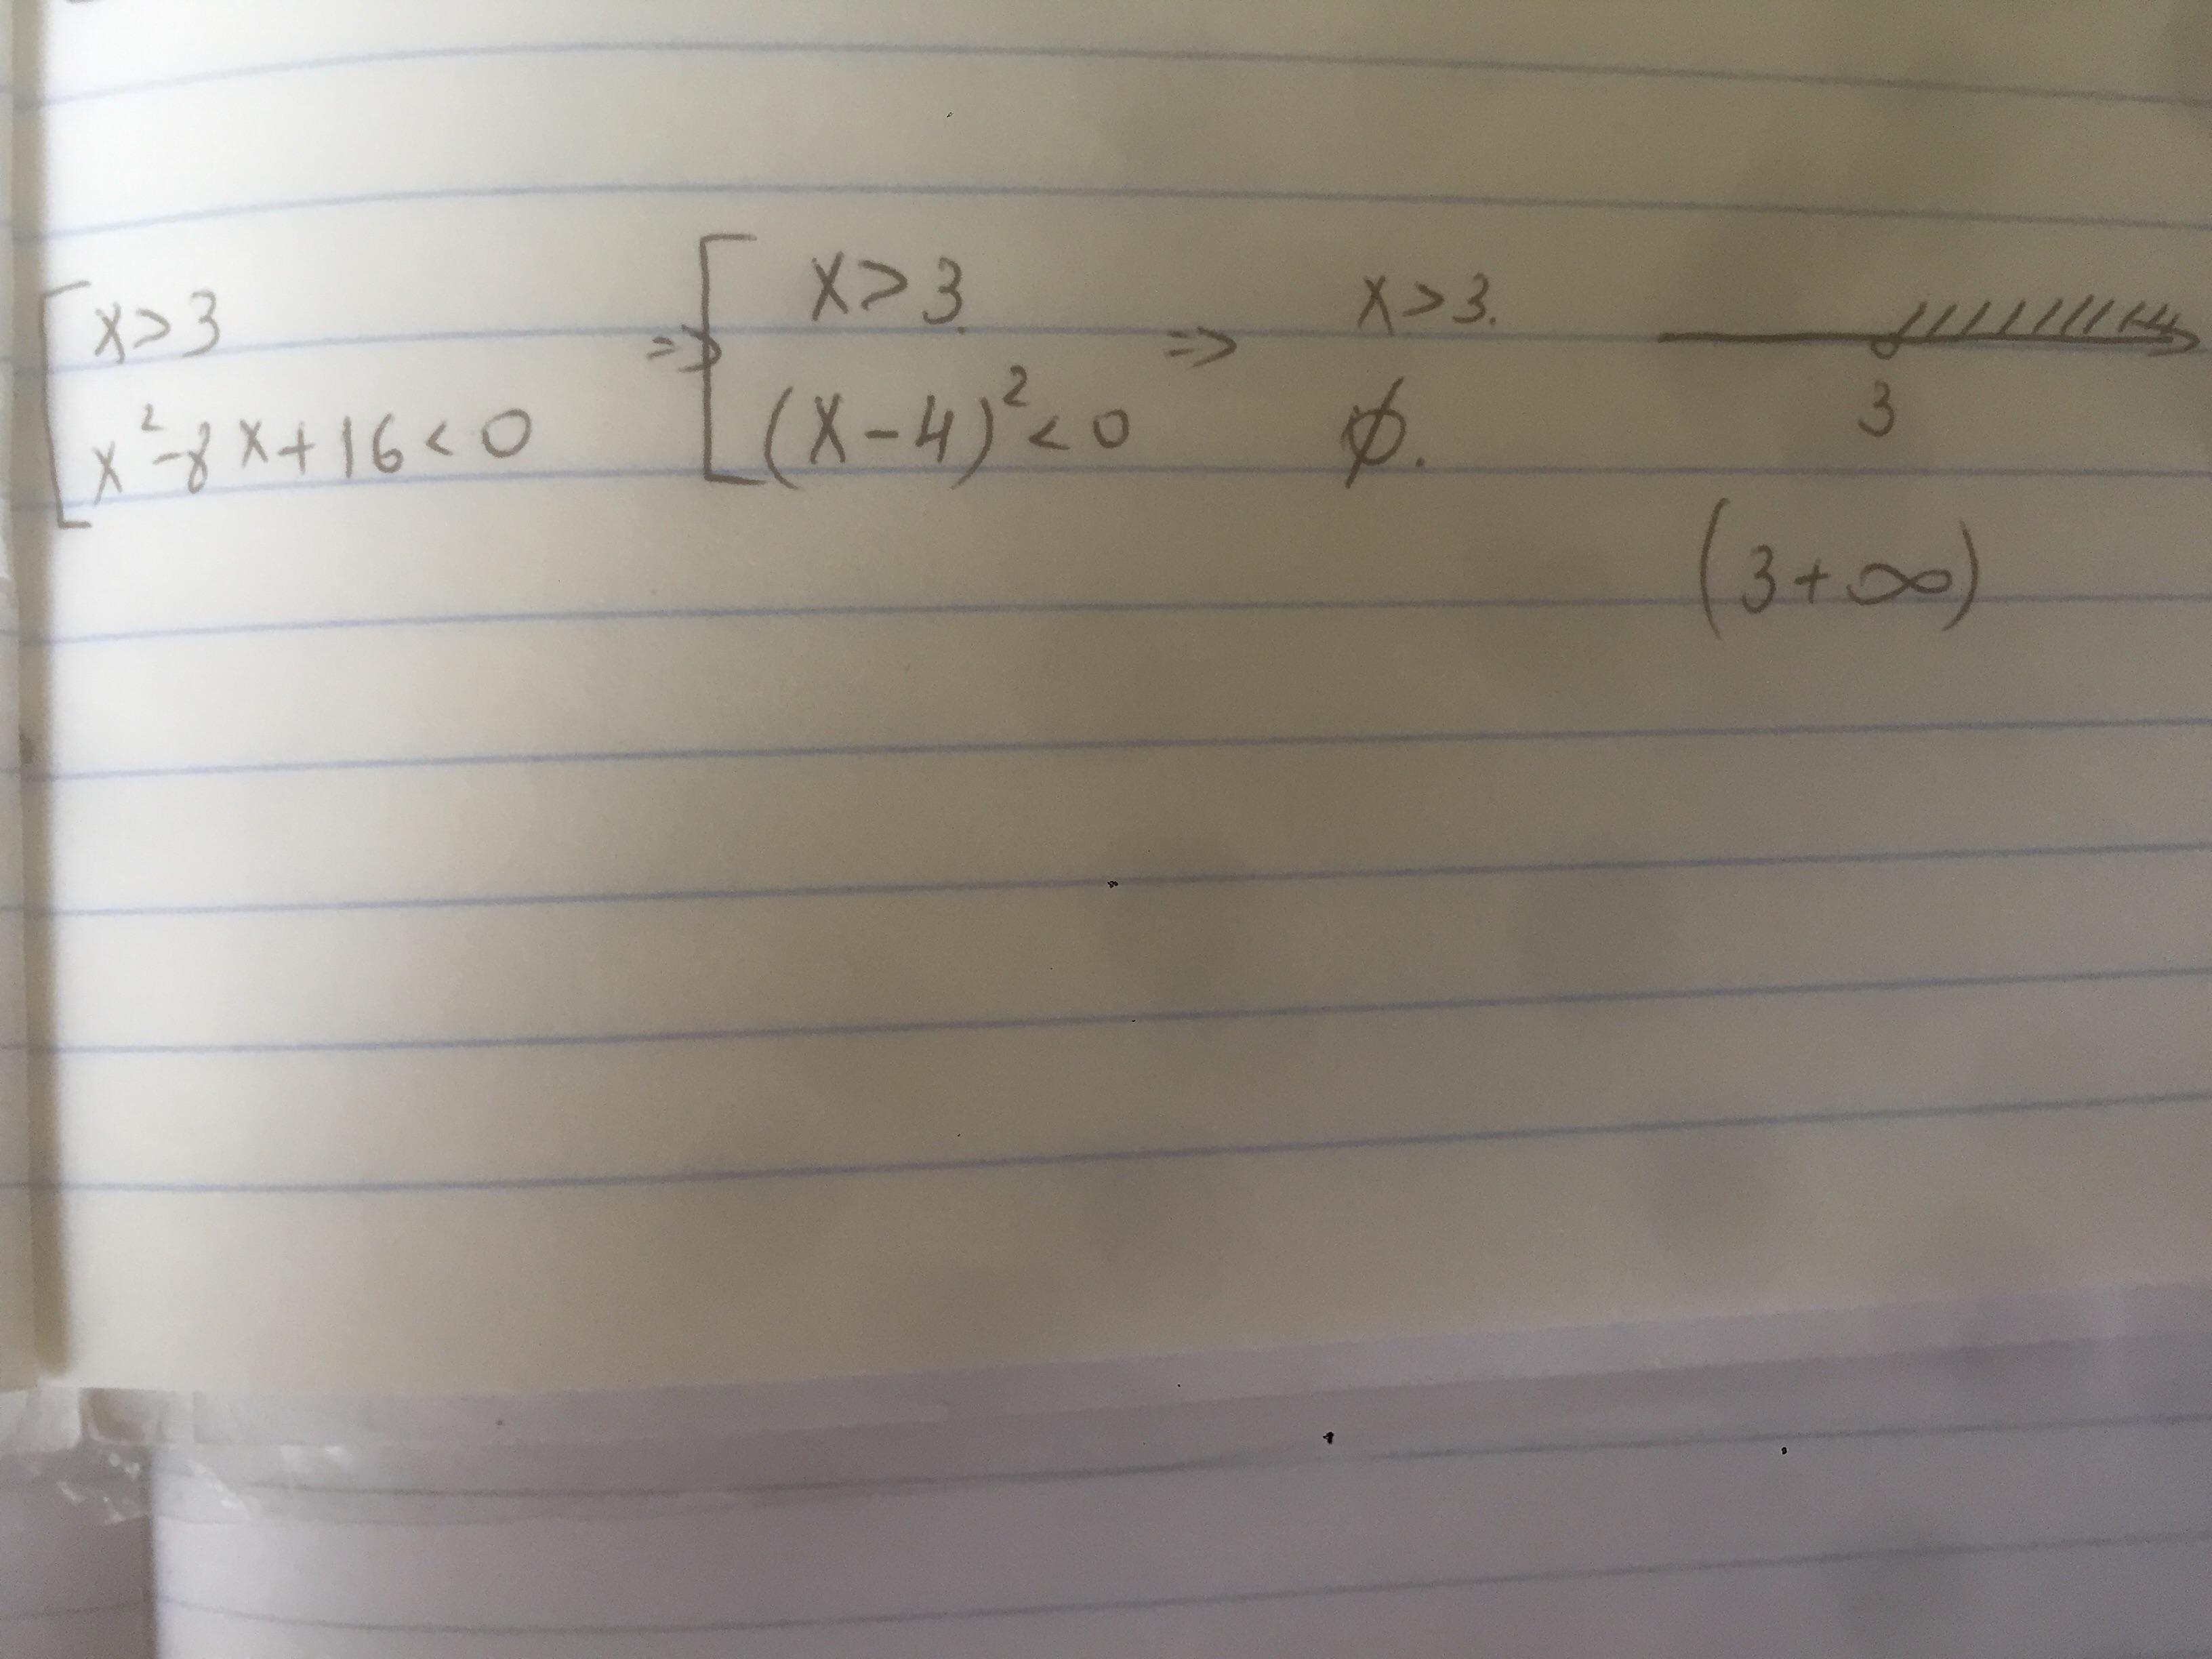 [ x > 3
x² - 8x + 16 < 0
=> [ x > 3
(x - 4)² < 0
=> x > 3.
∅.
3
(3 + ∞)